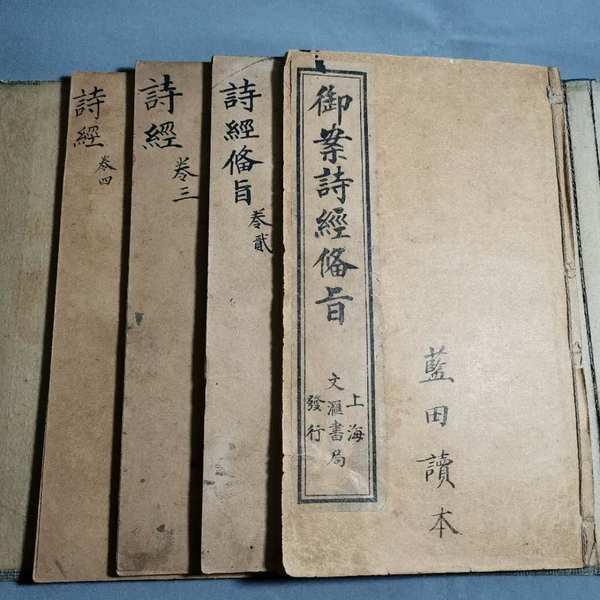 御案詩經備旨
上海
文滙書局
發行
藍田讀本
詩經備旨
卷貳
詩經
卷三
詩經
卷四